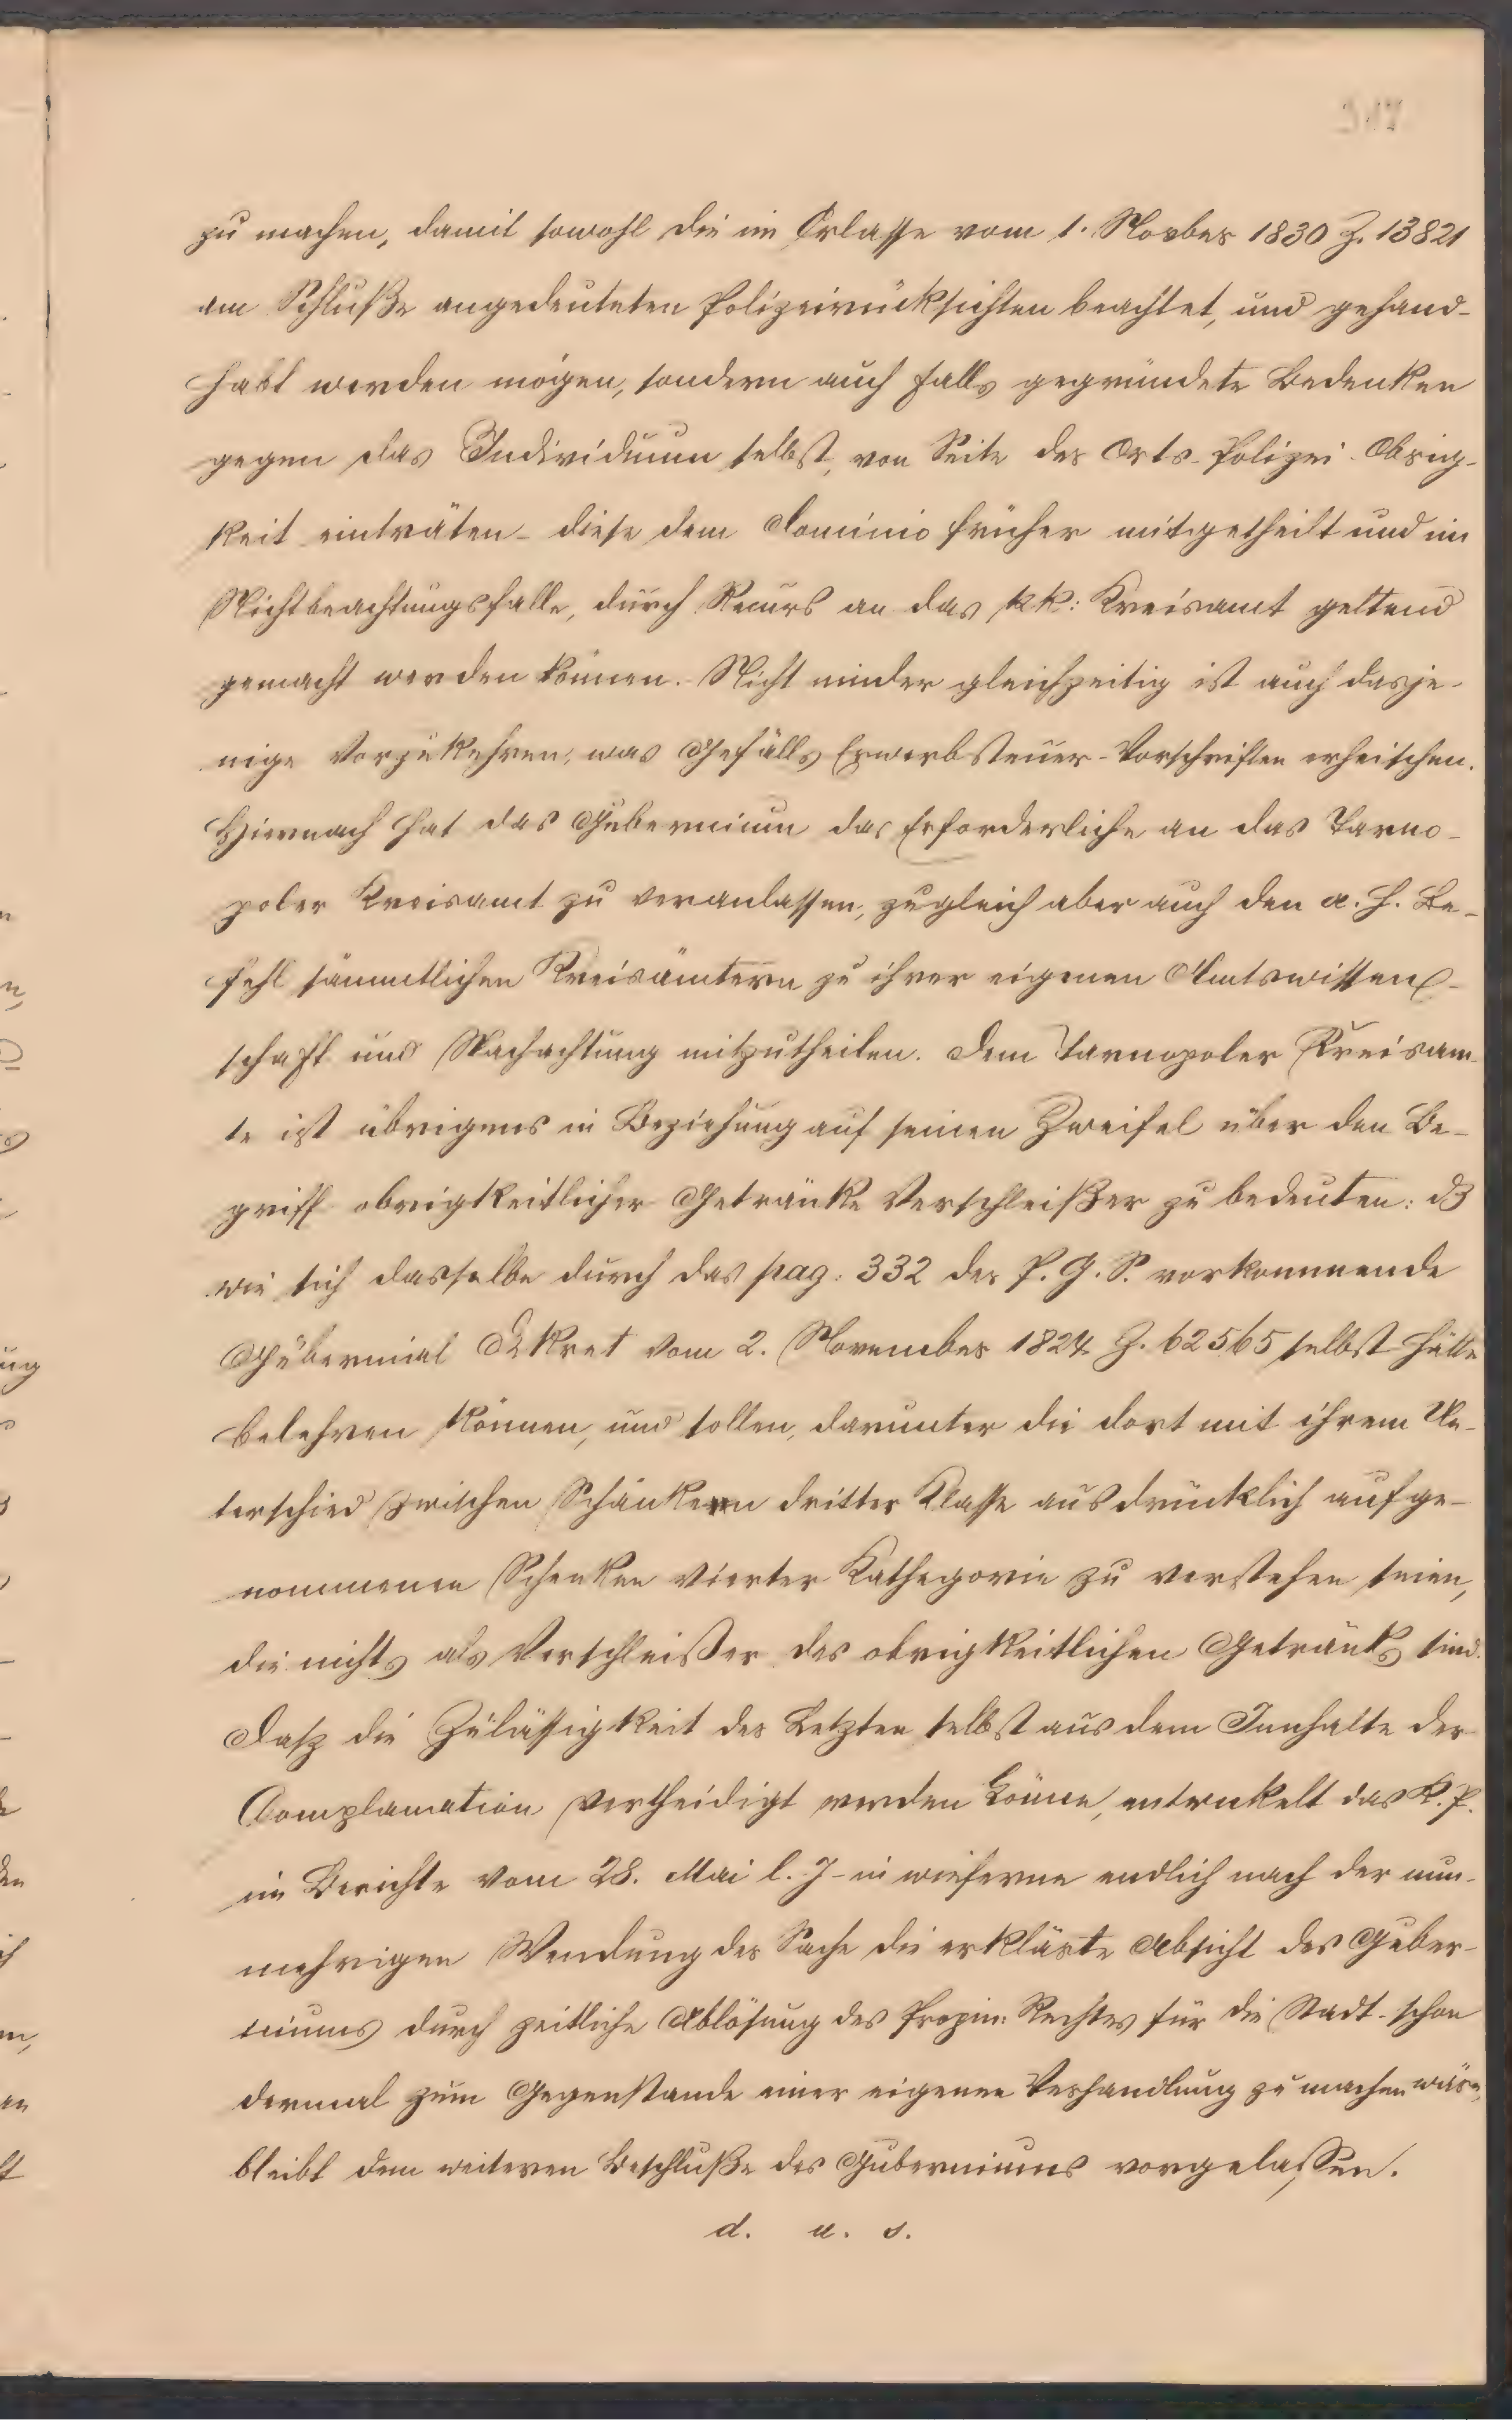 zu machen, damit sowohl die im Erlasse vom 1. Novber 1830 Z. 13821
am Schluße angedeuteten Polizeirücksichten beachtet, und gehand-
habt werden mögen, sondern auch falls gegründete Bedenken
gegen das Individuum selbst, von Seite der Orts-Polizei-Obrig-
keit einträten - diese dem Dominio früher mitgetheilt und im
Nichtbeachtungsfalle, durch Recurs an das kk: Kreisamt geltend
gemacht werden können. Nicht minder gleichzeitig ist auch dasje-
nige vorzukehren, was Gefälls Erwerbsteuer-Vorschriften erheischen.
Hiernach hat das Gubernium das Erforderliche an das Tarno-
poler Kreisamt zu veranlassen, zugleich aber auch den a. h. Be-
fehl sämmtlichen Kreisämtern zu ihrer eigenen Amtswissen-
schaft und Nachachtung mitzutheilen. Dem Tarnopoler Kreisam-
te ist übrigens in Beziehung auf seinen Zweifel über den Be-
griff obrigkeitlicher Getränke Verschleißer zu bedeuten: dß
wie sich dasselbe durch das pag: 332 der P. G. S. vorkommende
Gubernial Dekret vom 2. November 1824 Z. 62565 selbst hätte
belehren können, und sollen, darunter die dort mit ihrem Un-
terschied zwischen Schänkern dritter Klasse ausdrücklich aufge-
nommenen Schenken vierter Kathegorie zu verstehen seien,
die nichts als Verschleißer des obrigkeitlichen Getränks sind.
Dasz die Zuläßigkeit der Letzten selbst aus dem Innhalte der
Complanation vertheidigt werden könne, entwickelt das K. P.
im Berichte vom 28. Mai l. J - in wieferne endlich nach der nun-
mehrigen Wendung der Sache die erklärte Absicht des Guber-
niums durch zeitliche Ablösung des Propin: Rechtes für die Stadt - schon
dermal zum Gegenstande einer eigenen Verhandlung zu machen wäre,
bleibt dem weiteren Beschluße des Guberniums vorgelassen.
d. u. s.